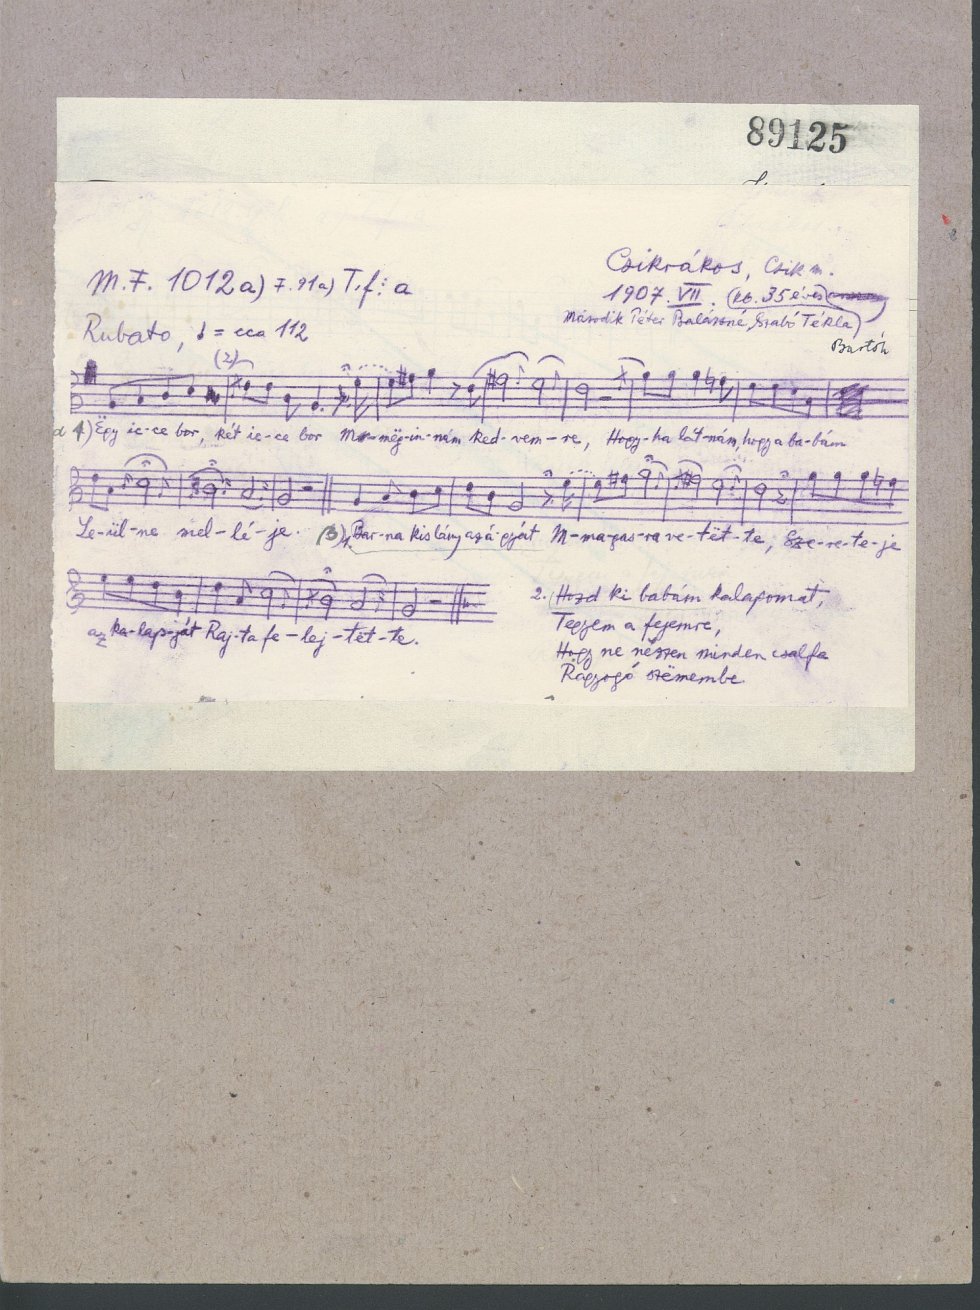 89125
M.F. 1012a) F. 91a) T.f: a
Csikrákos, Csik m.
1907. VII. (kb. 35 éves)
Második Péter Balázsné, Szabó Tékla)
Bartók
Rubato, ♩ = cca 112
(2)
1) Ëgy ic-ce bor, két ic-ce bor Mëg-in-nám ked-vem-re, Hogy-ha lát-nám, hogy a ba-bám
Le-ül-ne mel-lé-je. (3) Bar-na kislány az á-gyát M-ma-gas-ra ve-tët-te, Sze-re-tő-je
az ka-lap-ját Raj-ta fe-lej-tët-te.
2. Hozd ki babám kalapomat,
Tegyem a fejemre,
Hogy ne nézzen minden csalfa
Ragyogó szëmembe.